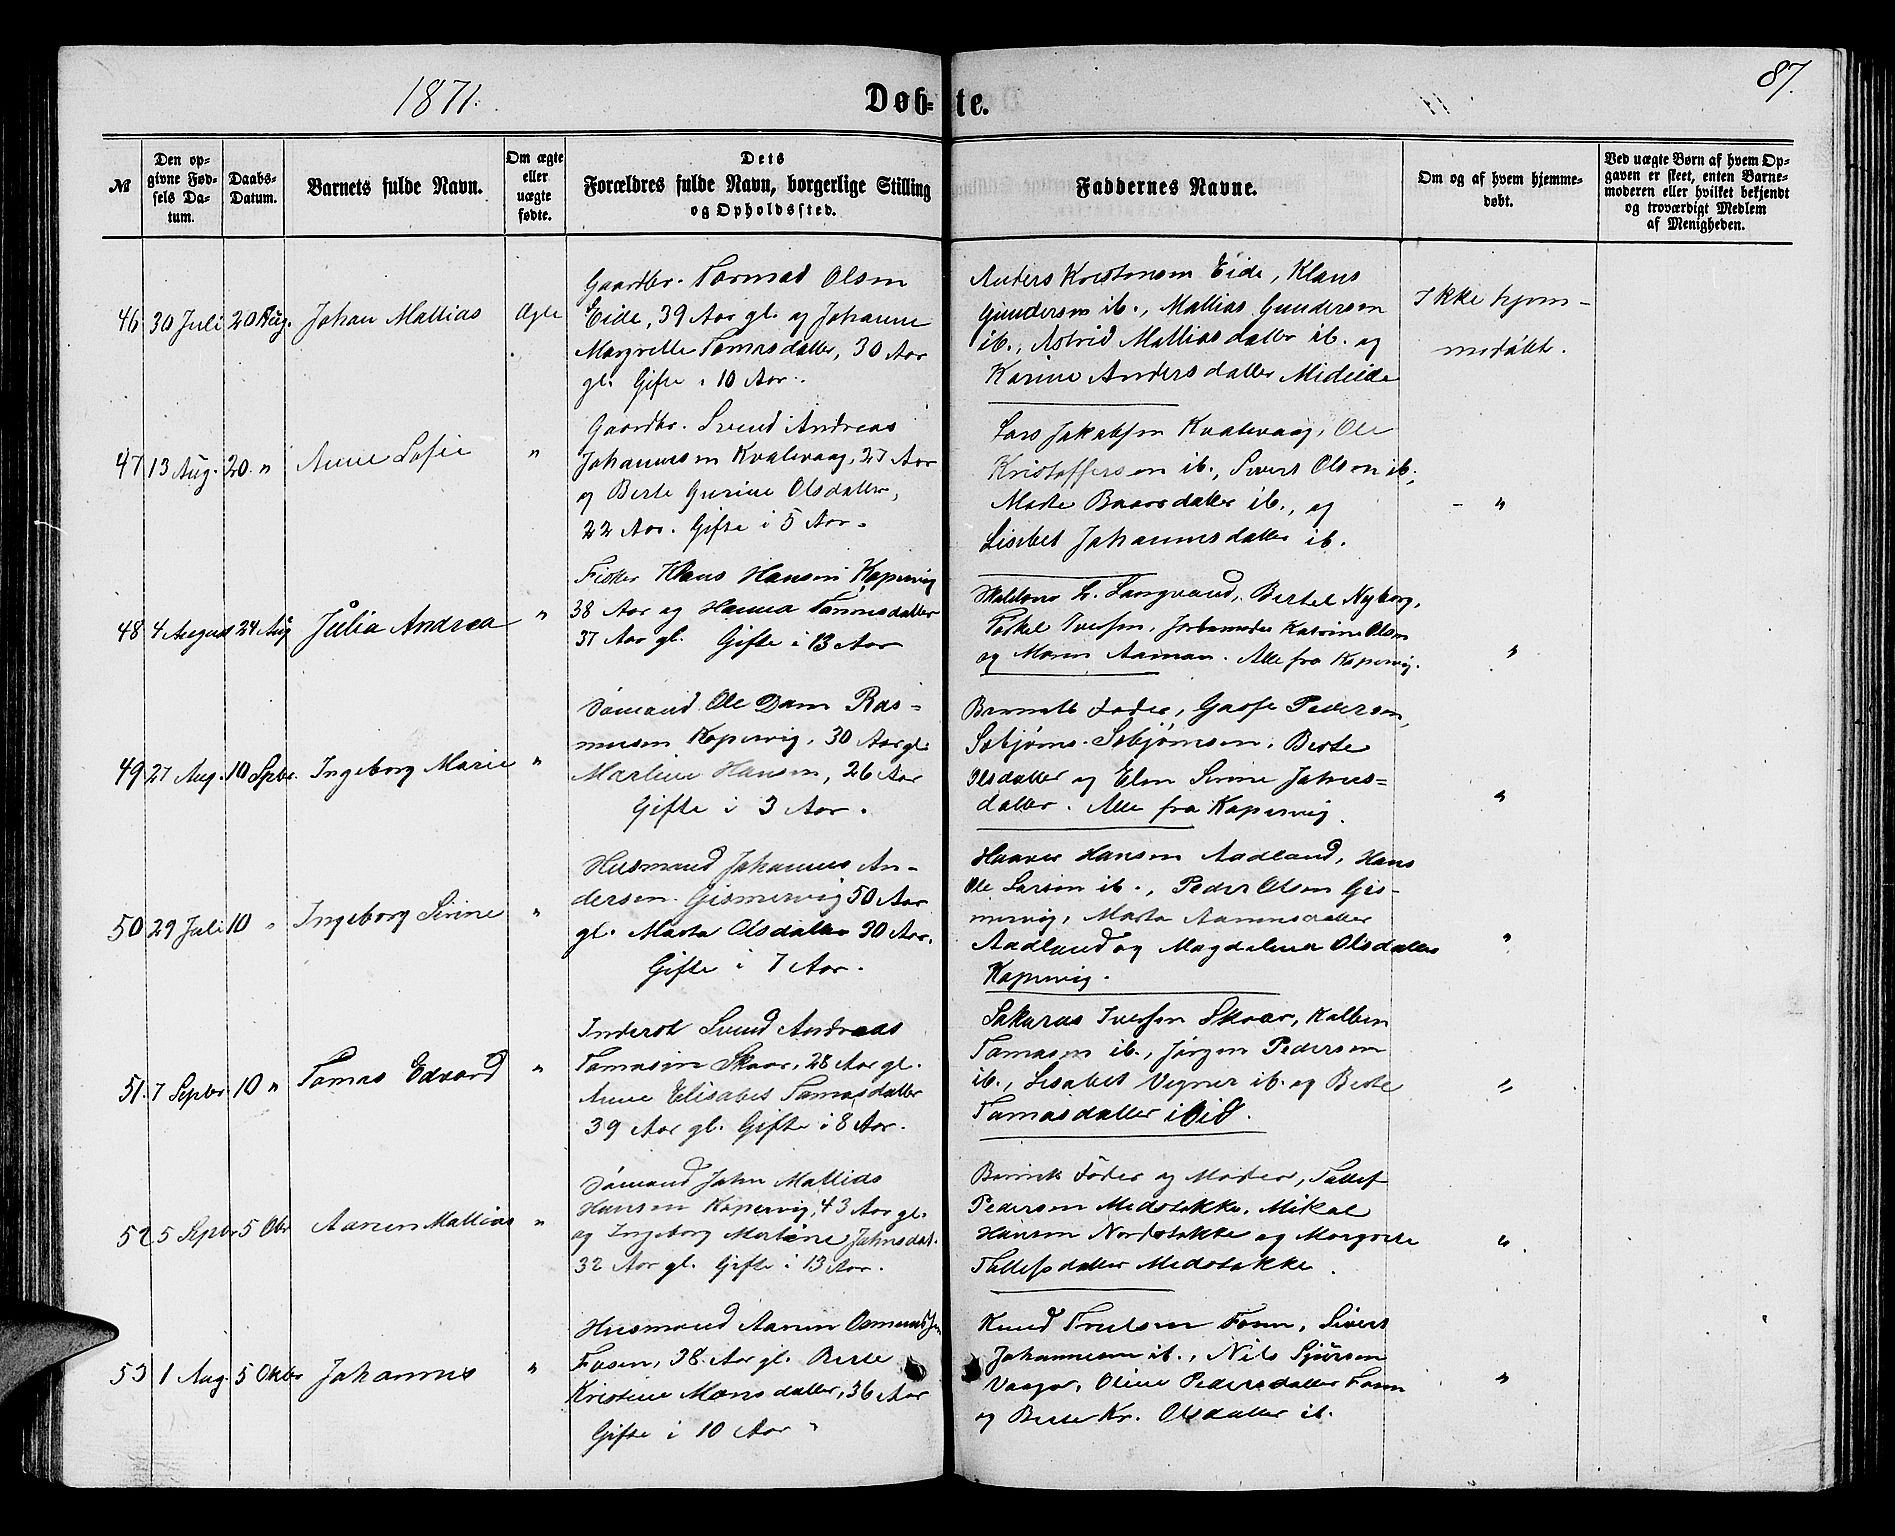 1871.
Døb-te.
87.
№
Den op-
givne Fød-
sels Da-
tum.
Daabs-
Datum.
Barnets fulde Navn.
Om ægte
eller
uægte
fødte.
Dets
Forældres fulde Navn, borgerlige Stilling
og Opholdssted.
Faddernes Navne.
Om og af hvem hjemme-
døbt.
Ved uægte Børn af hvem Op-
gaven er skeet, enten Barne-
moderen eller hvilket bekjendt
og troværdigt Medlem
af Menigheden.
46. 30 Juli 20 Aug. Johan Mattias Ægte
Gaardbr. Tormod Olsen
Eide, 39 Aar gl. og Johanne
Margrette Tomasdatter, 30 Aar
gl. Gifte i 10 Aar.
Anders Kristensen Eide, Klaus
Gundersen ib., Mattias Gundersen
ib., Astrid Mattiasdatter ib. og
Karine Andersdatter Mideide
Ikke hjem-
medøbt.
47 13 Aug. 20 " Anne Sofie "
Gaardbr. Svend Andreas
Johannesen Kvalevaag, 27 Aar
og Berte Gurine Olsdatter,
22 Aar. Gifte i 5 Aar.
Lars Jakobsen Kvalevaag, Ole
Kristoffersen ib., Sivert Olsen ib.,
Marte Baarsdatter ib., og
Lisebet Johannesdatter ib.
- "
48 4 August 24 Aug Julia Andrea "
Fisker Klaus Hansen Kopervig
38 Aar og Hanna Tommesdatter
37 Aar gl. Gifte i 13 Aar
L. Langvand, Bertel Nyborg,
Torkel Iversen, Jordemoder Katrine Olsen
og Maren Aaman. Alle fra Kopervig.
"
49 27 Aug. 10 Spbr. Ingeborg Marie "
Sømand Ole Dam Ras-
musen Kopervig, 30 Aar gl.
Martine Hansen, 26 Aar
Gifte i 3 Aar.
Barnets Fader, Pedersen,
Berte
Olsdatter og Elen Serine Johnes-
datter. Alle fra Kopervig.
"
50 29 Juli 10 " Ingeborg Sirine "
Husmand Johannes An-
dersen Gismervig 50 Aar
gl. Marta Olsdatter 30 Aar.
Gifte i 7 Aar.
Haaver Hansen Aadland, Hans
Ole Larsen ib., Peder Olsen Gis-
mervig, Marta Aanensdatter
Aadland og Magdalena Olsdatter
Kopervig.
"
51. 7 Sepbr 10 " Tomas Edvard "
Inderst Svend Andreas
Tomasen Skaar, 28 Aar gl.
Anne Elisabet Tomasdatter
39 Aar gl. Gifte i 8 Aar.
Sakarias Iversen Skaar, Kolben
Tomasen ib., Jørgen Pedersen
ib., Lisabet Vegner ib. og Berte
Tomasdatter ibid.
"
52 5 Sepbr 5 Obr Aanen Mattias "
Sømand John Mattias
Hansen Kopervig, 43 Aar gl.
og Ingeborg Martine Johnsdat.
32 Aar gl. Gifte i 13 Aar.
Fader og Moder, Tollef
Pedersen Medstokke, Mikal
Hansen Nordstokke og Margrete
Tollefsdatter Medstokke.
"
53 1 Aug. 5 Oktbr Johannes "
Husmand Aanen Osmundsen
Fosen, 38 Aar gl. Berte
Kristine Monsdatter, 36 Aar
Gifte i 10 Aar "
Knud Troelsen Fosen, Sivert
Johannesen ib., Nils Sjursen
Vaager, Oline Pedersdatter Fosen
og Berte Kr. Olsdatter ib.
"